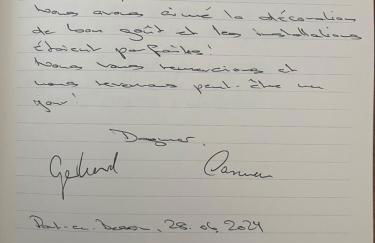 Nous avons aimé la décoration
de bon goût et les installations
étaient parfaites!
Nous vous remercions et
nous revenons peut-être un
jour!
Dagmar,
Gerhard Carmen
Port-en-Bessin, 28.06.2024